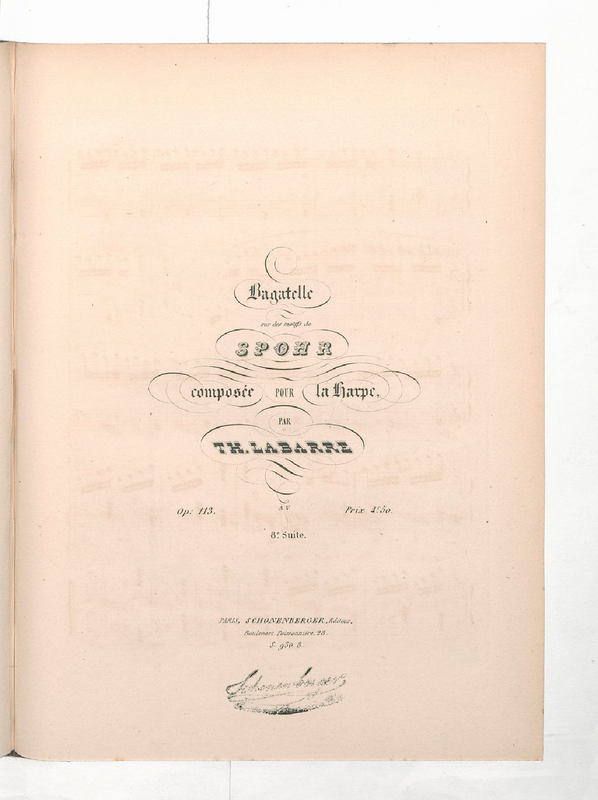 Bagatelle
sur des motifs de
SPOHR
composée POUR la Harpe,
PAR
TH. LABARRE
A.V
Op: 113. Prix 4f 50.
8e Suite.
PARIS, SCHONENBERGER, Éditeur,
Boulevart Poissonnière, 28.
S. 930. 8.
Schonenberger